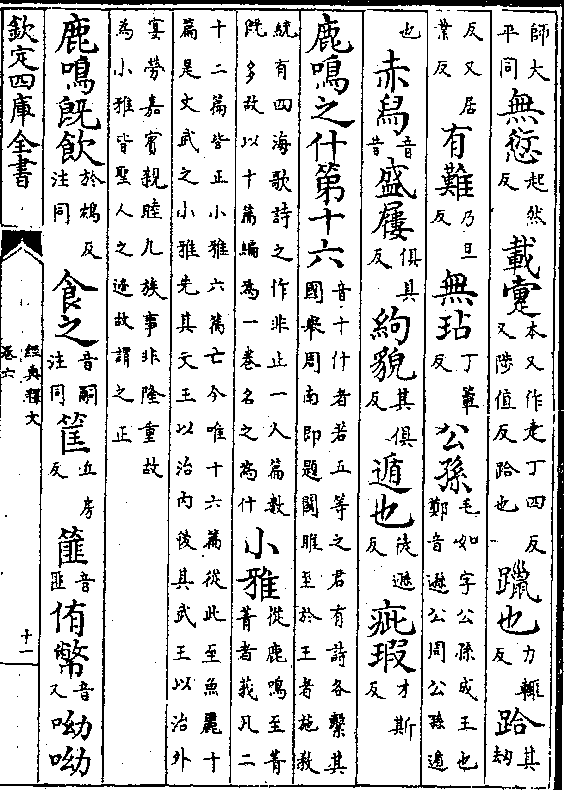 師大平同無愆起然反載疐本又作疌丁四反又陟值反跲也躐也力輒反跲其劫
反又居業反有難乃旦反無玷丁簟反公孫毛如字公孫成王也鄭音遜公周公孫遁
也赤舄音昔盛屨俱具反絇貌其俱反遁也徒遜反疵瑕才斯反
鹿鳴之什第十六音十什者若五等之君有詩各繫其國舉周南即題關雎至於王者施教
統有四海歌詩之作非止一人篇數既多故以十篇編為一卷名之為什小雅從鹿鳴至菁菁者莪凡二
十二篇皆正小雅六篇亡今唯十六篇從此至魚麗十篇是文武之小雅先其文王以治内後其武王以治外
宴勞嘉賓親睦九族事非隆重故為小雅皆聖人之迹故謂之正
鹿鳴既飲於鴆反注同食之音嗣注同筐丘房反篚音匪侑幣音又呦呦
欽定四庫全書
經典釋文
卷六
十一